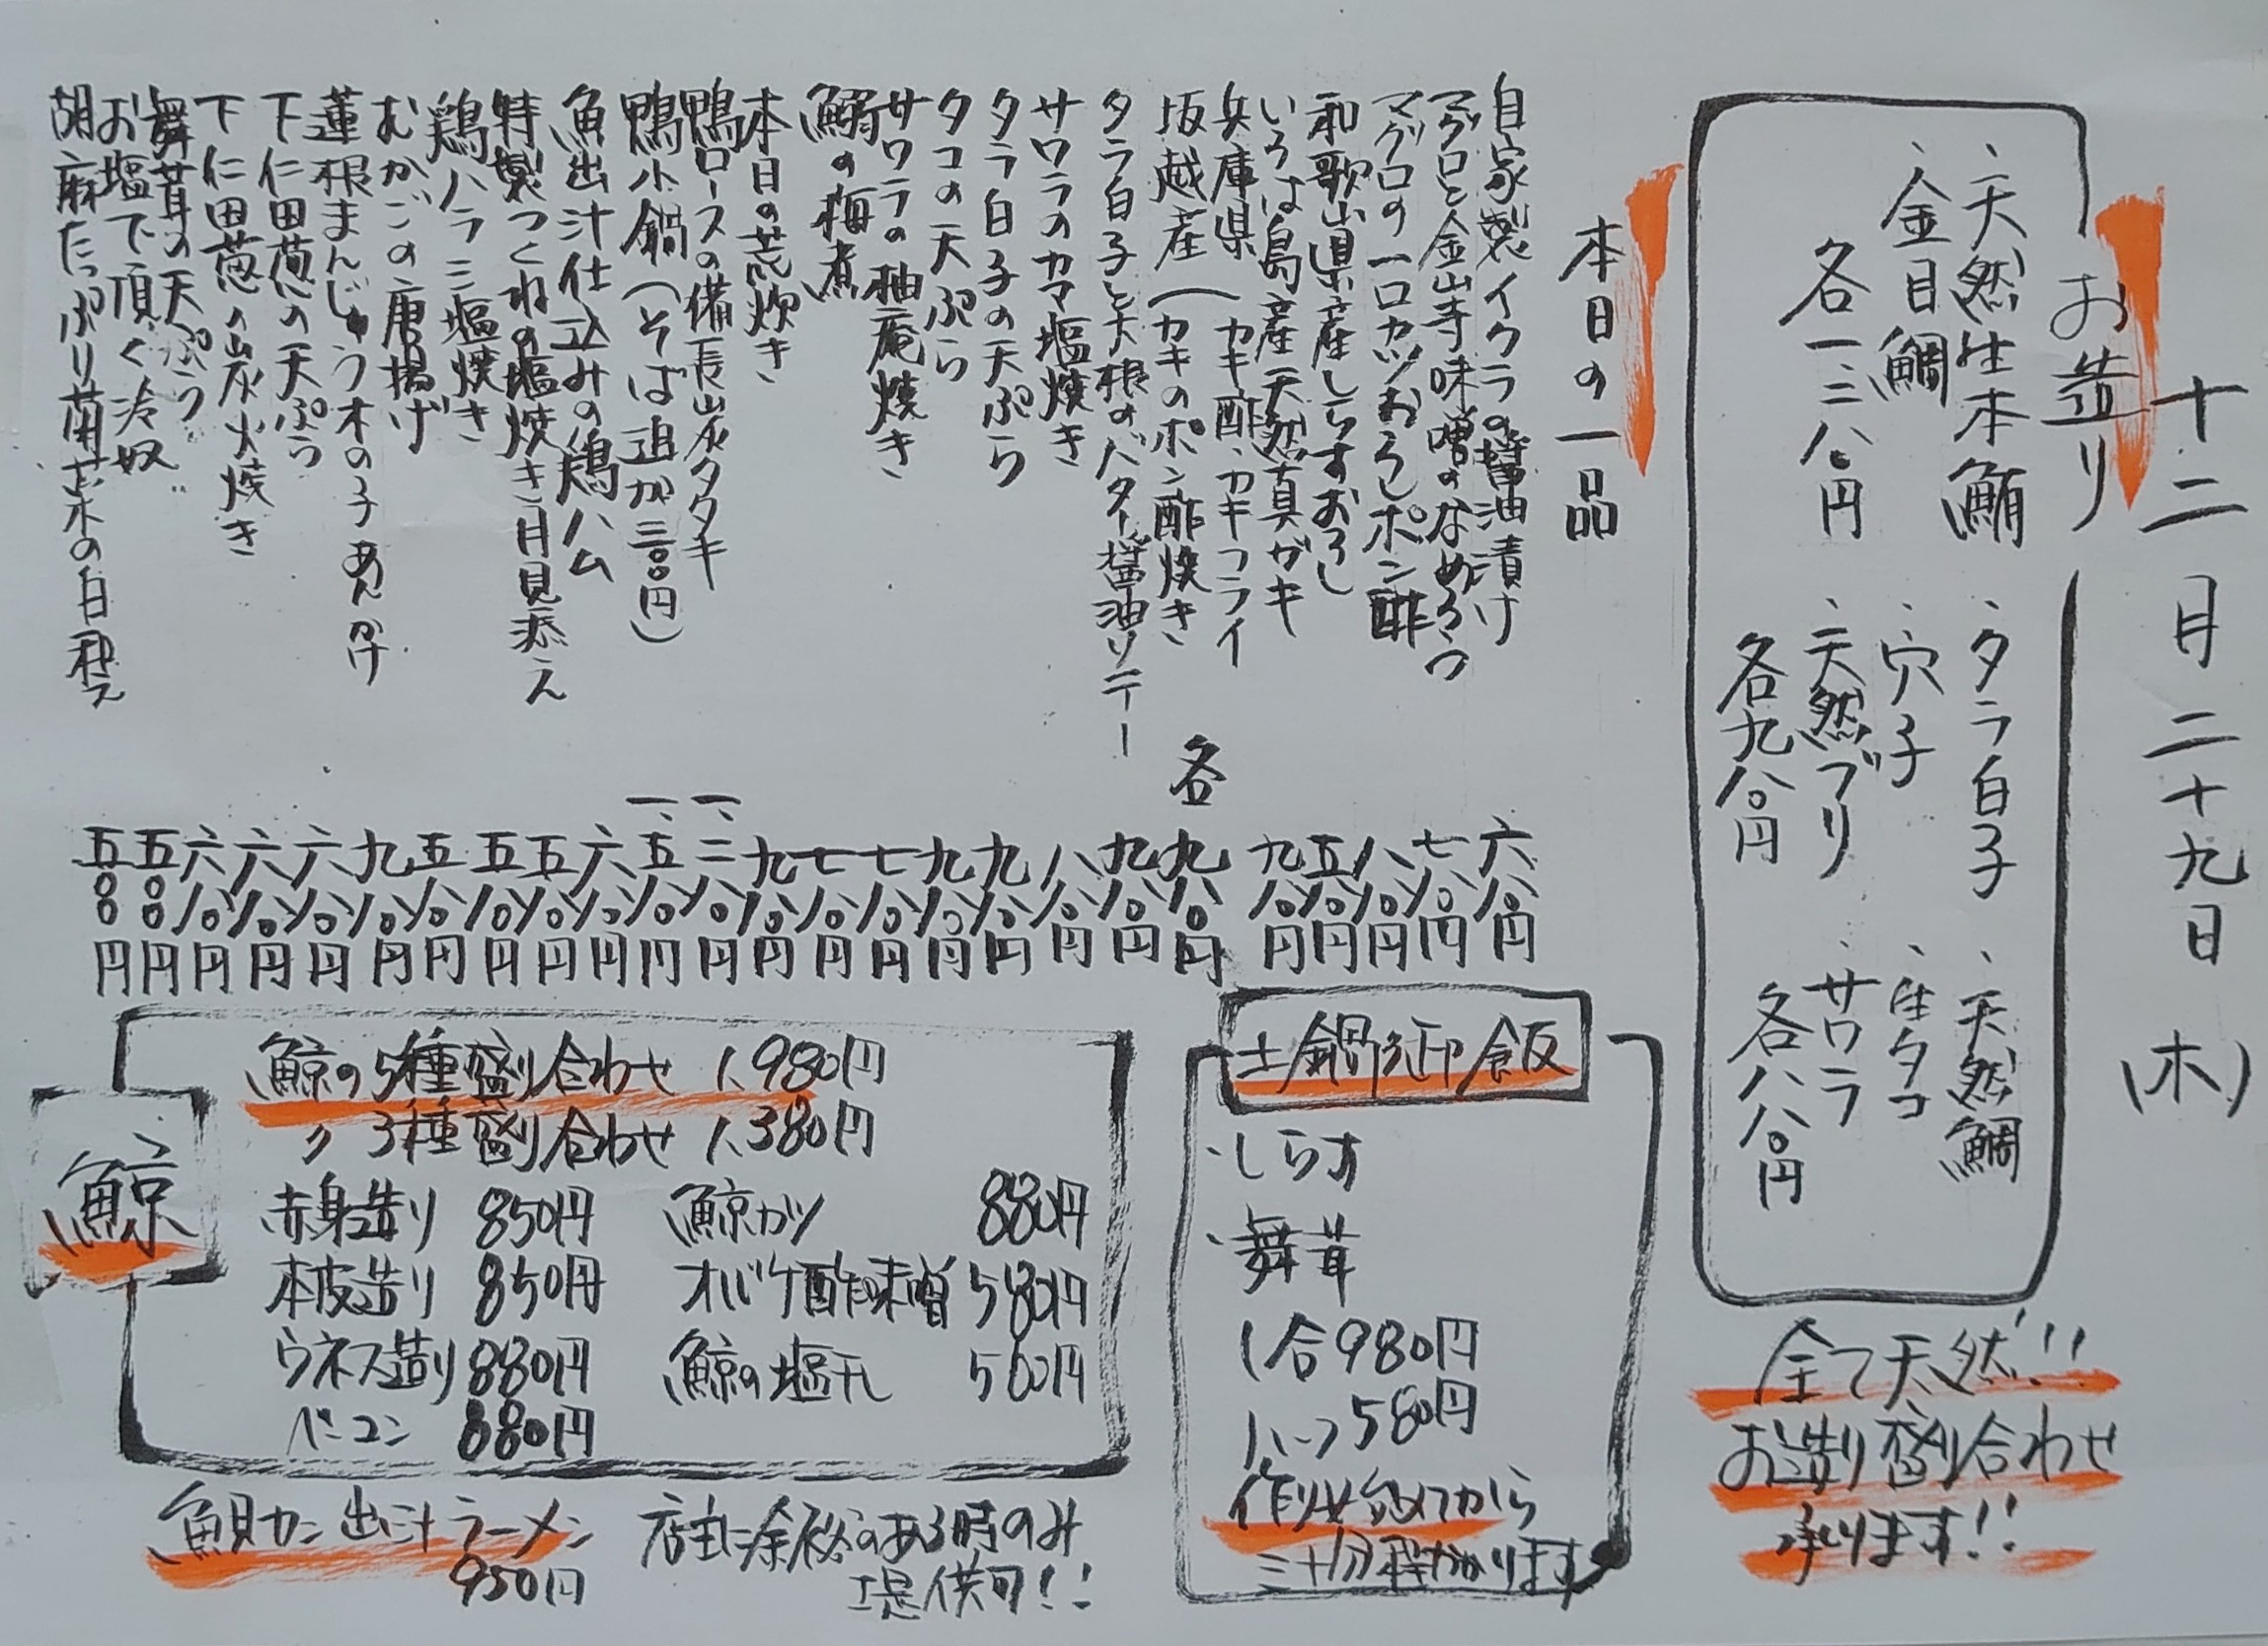 十二月二十九日(木)
お造り
、天然生本鮪
、金目鯛
各一、三八〇円
、タラ白子
、穴子
、天然ブリ
各九八〇円
、天然鯛
、生タコ
、サワラ
各八八〇円
全て天然!!
お造り盛り合わせ
承ります!!
本日の一品
自家製イクラの醤油漬け 六八〇円
マグロと金山寺味噌のなめろう 七八〇円
マグロの一口カツおろしポン酢 八八〇円
和歌山県産しらすおろし 五八〇円
いろは島産天然真ガキ 九八〇円
兵庫県(カキ酢、カキフライ
坂越産(カキのポン酢焼き 各 九八〇円
タラ白子と大根のバター醤油ソテー 九八〇円
サワラのカマ塩焼き 八八〇円
タラ白子の天ぷら 九八〇円
タコの天ぷら 九八〇円
サワラの柚庵焼き 七八〇円
鰯の梅煮 七八〇円
本日の荒炊き 九八〇円
鴨ロースの備長炭タタキ 一、二八〇円
鴨小鍋(そば追加三〇〇円) 一、五八〇円
魚出汁仕込みの鶏ハム 六八〇円
特製つくねの塩焼き月見添え 五八〇円
鶏ハラミ塩焼き 五八〇円
むかごの唐揚げ 五八〇円
蓮根まんじゅう木の子あんかけ 九八〇円
下仁田葱の天ぷら 六八〇円
下仁田葱の炭火焼き 六八〇円
舞茸の天ぷら 六八〇円
お塩で頂く冷奴 五〇〇円
胡麻たっぷり菊芋の白和え 五〇〇円
土鍋ご飯
・しらす
・舞茸
1合980円
ハーフ580円
作り始めてから
三十分程かかります
鯨
鯨の5種盛り合わせ 1、980円
〃 3種盛り合わせ 1、380円
赤身造り 850円
本皮造り 850円
ウネス造り 880円
ベーコン 880円
鯨カツ 880円
オバケ酢味噌 580円
鯨の塩干し 560円
魚貝カニ出汁ラーメン
950円
店主に余裕のある時のみ
提供可!!